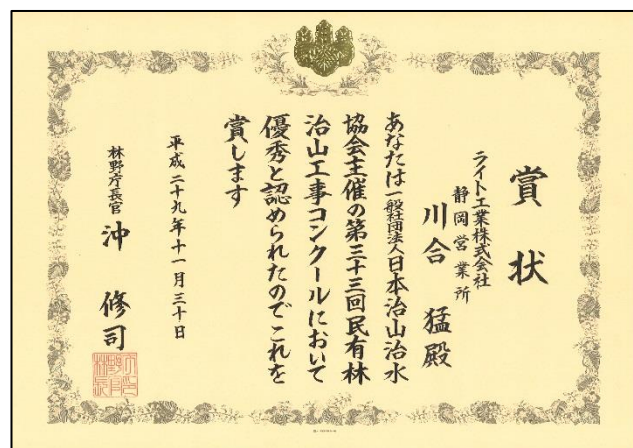 賞状
ライト工業株式会社
静岡営業所
川合 猛殿
あなたは一般社団法人日本治山治水
協会主催の第三十三回民有林
治山工事コンクールにおいて
優秀と認められたのでこれを
賞します
平成二十九年十一月三十日
林野庁長官 沖 修司